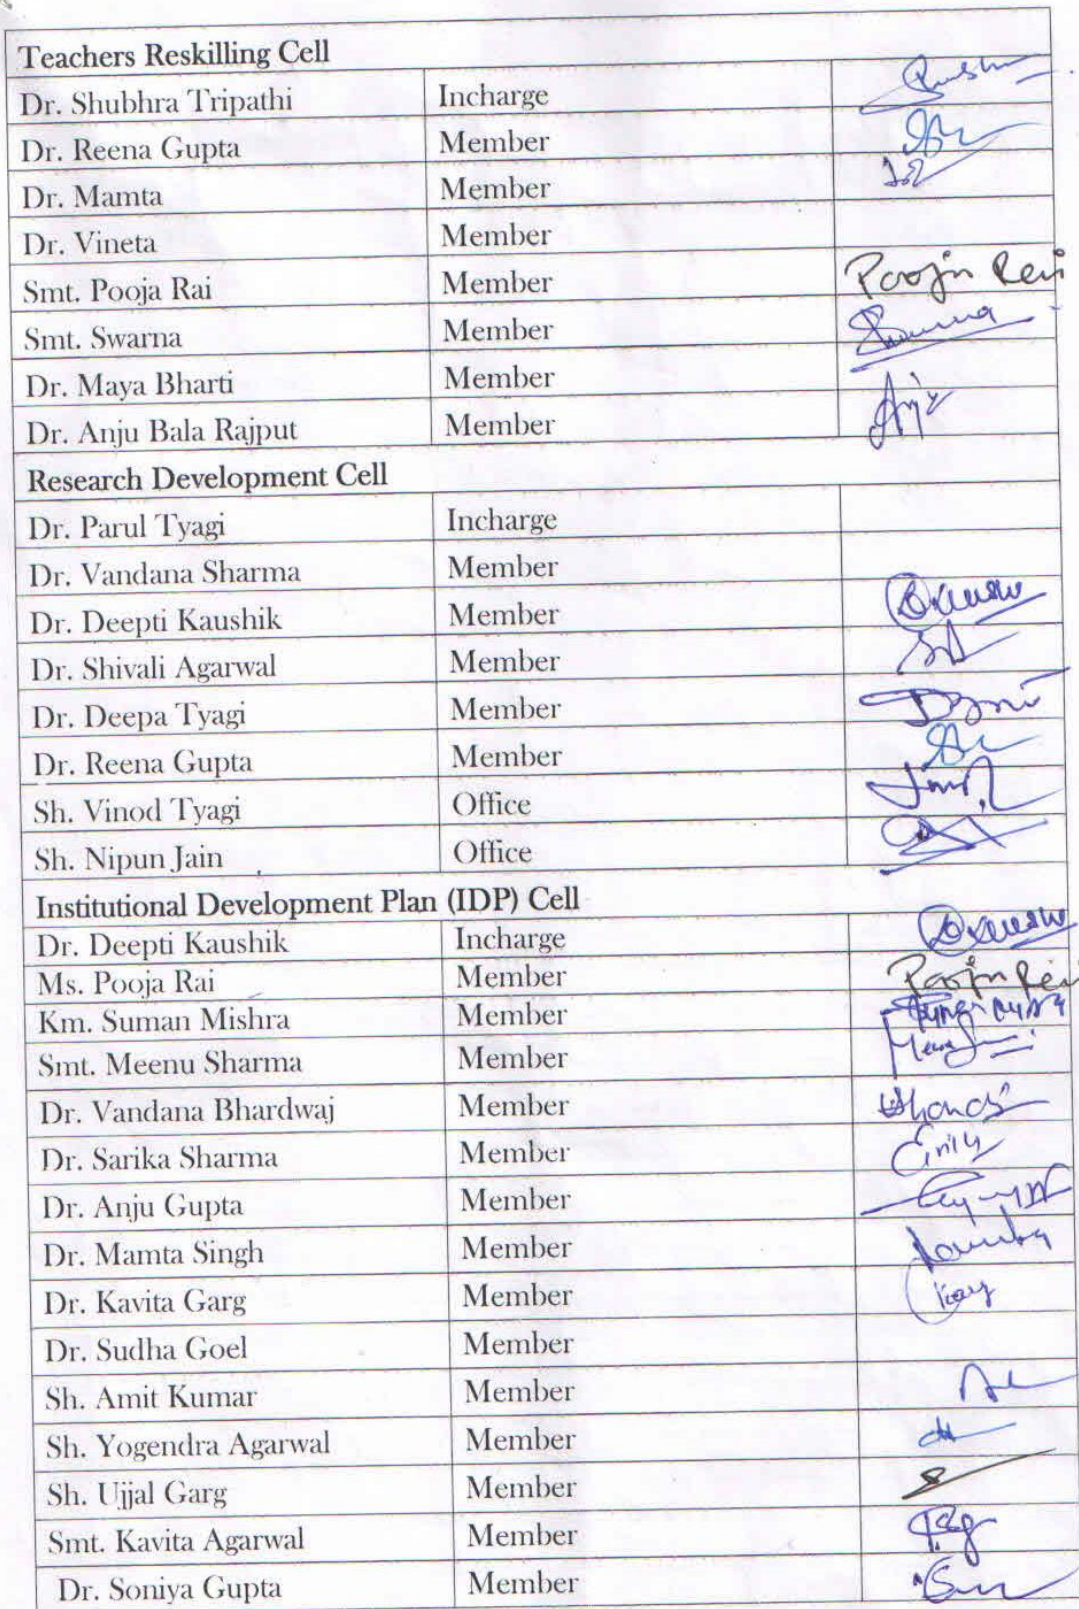 Teachers Reskilling Cell
Dr. Shubhra Tripathi Incharge
Dr. Reena Gupta Member
Dr. Mamta Member
Dr. Vineta Member
Smt. Pooja Rai Member Pooja Rai
Smt. Swarna Member
Dr. Maya Bharti Member
Dr. Anju Bala Rajput Member Anju
Research Development Cell
Dr. Parul Tyagi Incharge
Dr. Vandana Sharma Member
Dr. Deepti Kaushik Member
Dr. Shivali Agarwal Member
Dr. Deepa Tyagi Member
Dr. Reena Gupta Member
Sh. Vinod Tyagi Office
Sh. Nipun Jain Office
Institutional Development Plan (IDP) Cell
Dr. Deepti Kaushik Incharge
Ms. Pooja Rai Member Pooja Rai
Km. Suman Mishra Member
Smt. Meenu Sharma Member
Dr. Vandana Bhardwaj Member
Dr. Sarika Sharma Member
Dr. Anju Gupta Member
Dr. Mamta Singh Member
Dr. Kavita Garg Member
Dr. Sudha Goel Member
Sh. Amit Kumar Member
Sh. Yogendra Agarwal Member
Sh. Ujjal Garg Member
Smt. Kavita Agarwal Member
Dr. Soniya Gupta Member